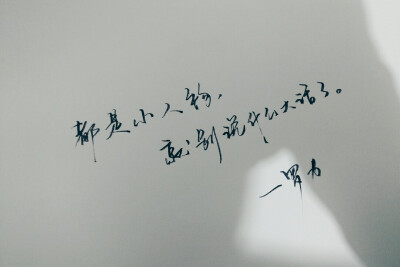 都是小人物，
就别说什么大话了。